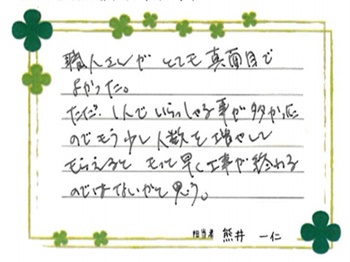 職人さんが とても 真面目で
よかった。
ただ、1人で いらっしゃる事が多かった
のでもう少し人数を増やして
もらえると もっと早く工事が終わる
のではないかと思う。
担当者 熊井 一仁